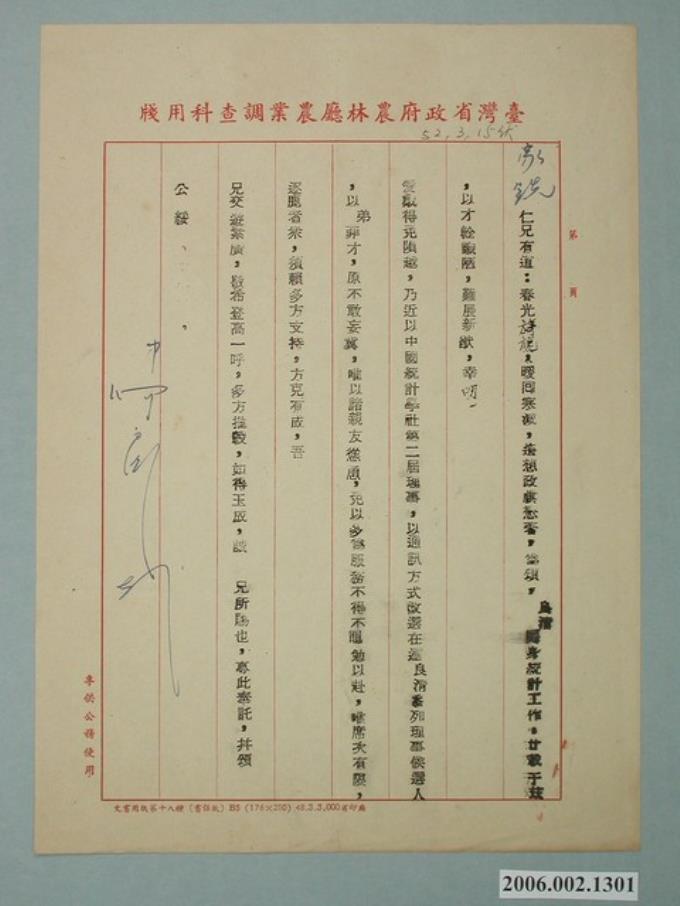 臺灣省政府農林廳農業調查科用牋
52.3.15
第 頁
仁兄有道：春光詩旎，暖回寒減，遙想政祺愆著，當頌，良清 獻身統計工作，廿載于茲
，以才輇識陋，難展新猷，幸明
愛最得免隕越，乃近以中國統計學社第二屆理事，以通訊方式改選在邇良清忝列理事候選人
，以弟菲才，原不敢妄冀，唯以諸親友慫恿，免以多事服務不得不黽勉以赴，唯席次有限，
逐鹿者衆，須賴多方支持，方克有成，吾
兄交遊素廣，敬希登高一呼，多方推轂，如得玉成，該 兄所賜也，專此奉託，并頌
公綏
專供公務使用
文書用紙第十八種（書信紙）B5 (176×250) 48.3.3,000省印廠
2006.002.1301